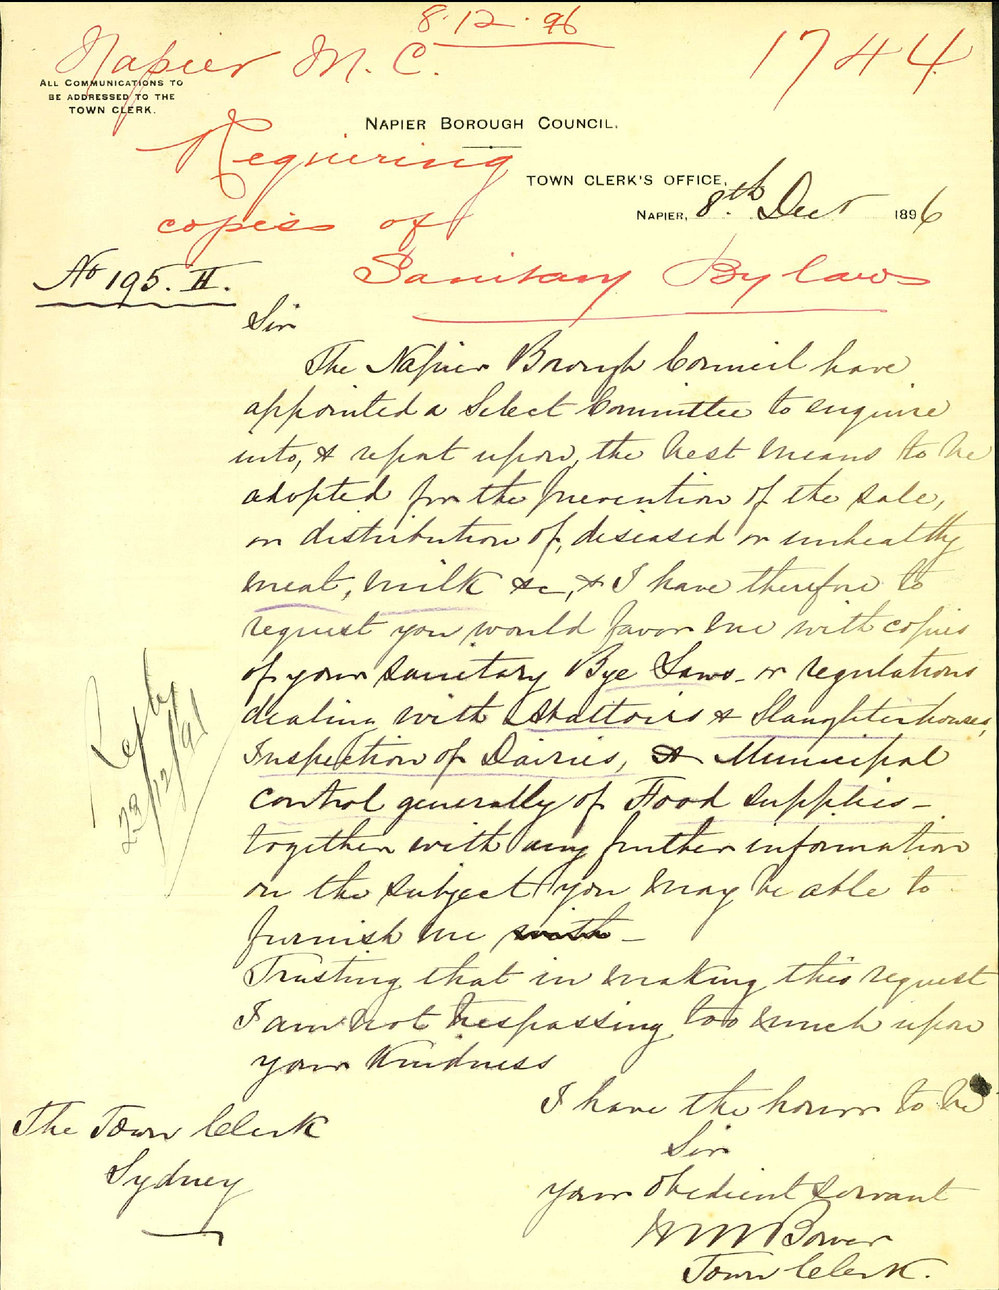 8.12.96
Napier M. C.
1744
ALL COMMUNICATIONS TO
BE ADDRESSED TO THE
TOWN CLERK.
NAPIER BOROUGH COUNCIL.
Requiering
TOWN CLERK'S OFFICE,
NAPIER, 8th Decr 1896
copies of
Sanitary By laws
No 195. II.
Sir
The Napier Borough Council have
appointed a Select Committee to enquire
into, & report upon, the best means to be
adopted for the prevention of the sale,
or distribution of, diseased or unhealthy
meat, milk &c, & I have therefore to
request you would favor me with copies
of your sanitary Bye Laws - or regulations
dealing with Abattoirs & Slaughterhouses,
Inspection of Dairies, & Municipal
control generally of Food supplies -
together with any further information
on the subject you may be able to
furnish me with -
Trusting that in making this request
I am not trespassing too much upon
your kindness
I have the honor to be
Sir
your obedient servant
Bower
Town Clerk.
The Town Clerk
Sydney
Reply